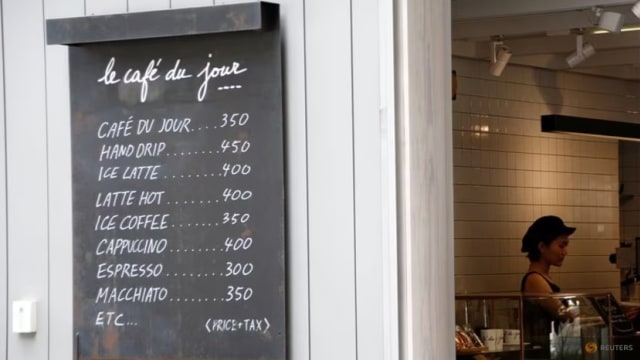 le café du jour
CAFÉ DU JOUR....350
HAND DRIP........450
ICE LATTE ........400
LATTE HOT ........400
ICE COFFEE.......350
CAPPUCCINO.......400
ESPRESSO........300
MACCHIATO.......350
ETC... <PRICE+TAX>
REUTERS